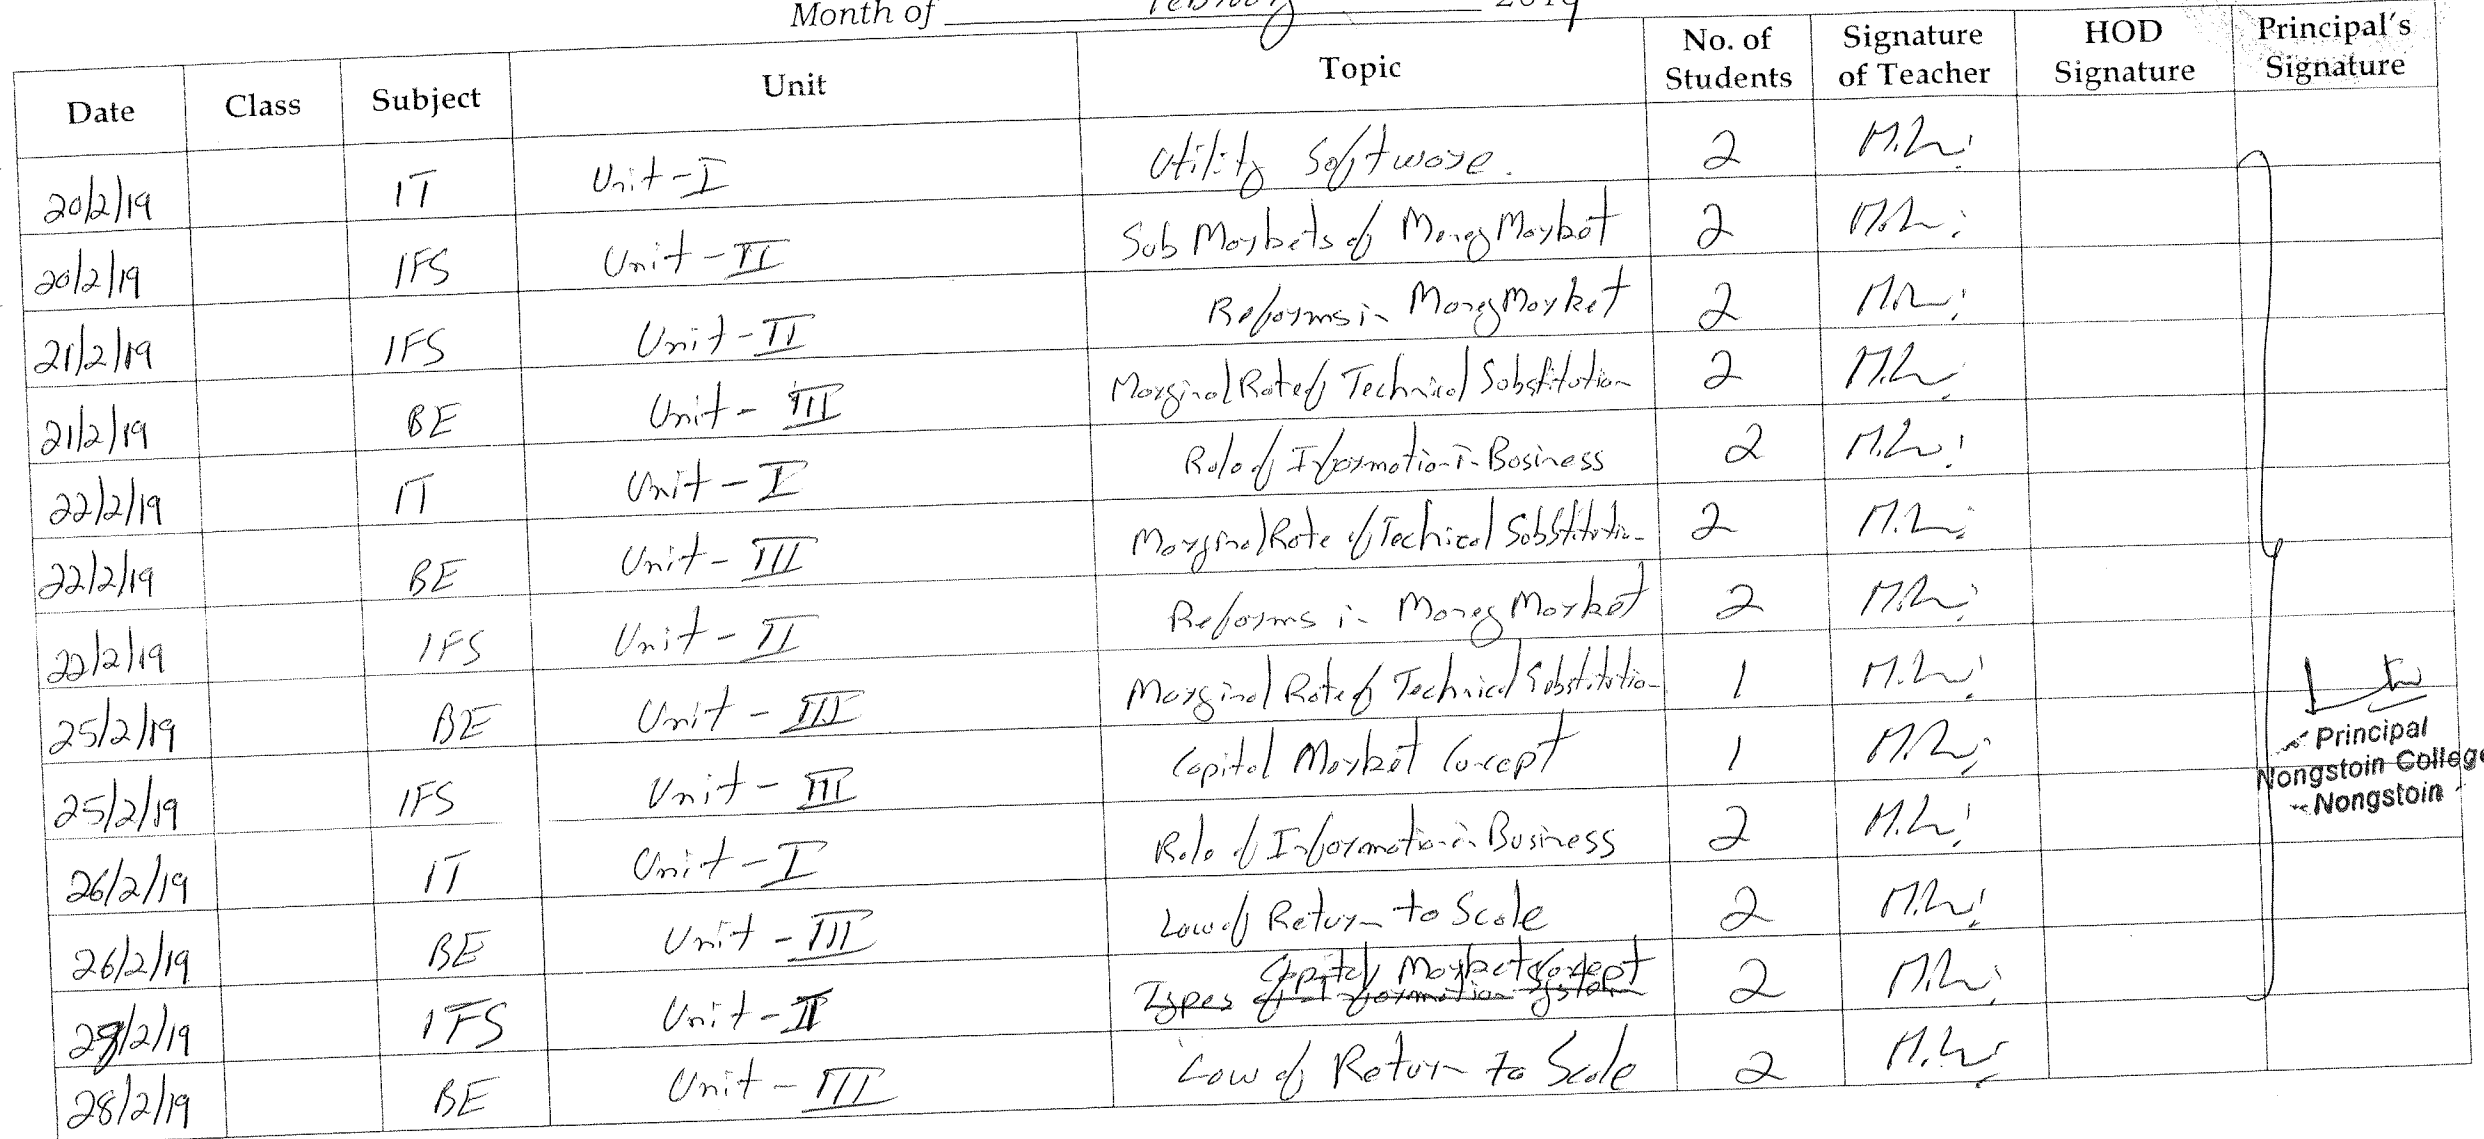 Month of February 2019
Date Class Subject Unit Topic No. of Students Signature of Teacher HOD Signature Principal's Signature
20/2/19 IT Unit-I Utility Software. 2
20/2/19 IFS Unit-II Sub Markets of Money Market 2
21/2/19 IFS Unit-II Reforms in Money Market 2
21/2/19 BE Unit-III Marginal Rate of Technical Substitution 2
22/2/19 IT Unit-I Role of Information in Business 2
22/2/19 BE Unit-III Marginal Rate of Techical Substitution 2
22/2/19 IFS Unit-II Reforms in Money Market 2
25/2/19 BE Unit-III Marginal Rate of Technical Substitution 1
25/2/19 IFS Unit-III Capital Market Concept 1
Principal
Nongstoin College
Nongstoin
26/2/19 IT Unit-I Role of Information in Business 2
26/2/19 BE Unit-III Law of Return to Scale 2
/2/19 IFS Unit-II Capital Market Concept Types of Information System 2
28/2/19 BE Unit-III Law of Return to Scale 2